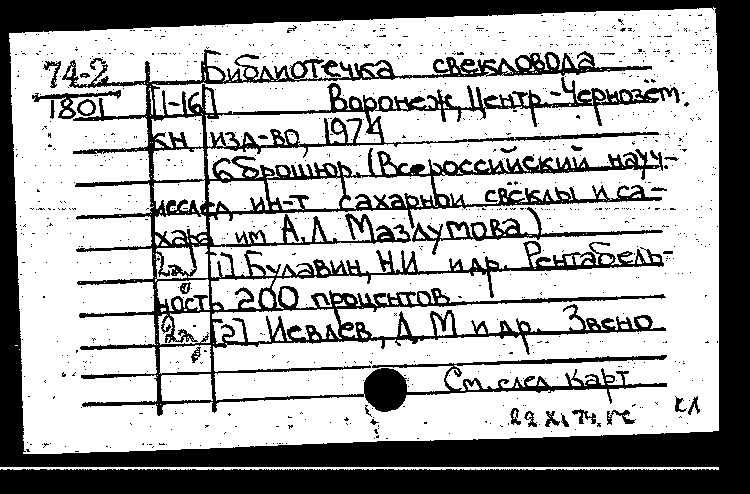 74-2 Библиотечка свекловода
1801 [1-16] Воронеж, Центр.-Чернозём.
кн изд-во, 1974
6 брошюр. (Всероссийский науч-
исслед ин-т сахарной свёклы и са-
хара им А.Л. Мазлумова.)
[1] Булавин, Н.И и др. Рентабель-
ность 200 процентов.
[2] Иевлев, Д. М и др. Звено
См. след карт
22 XI 74.